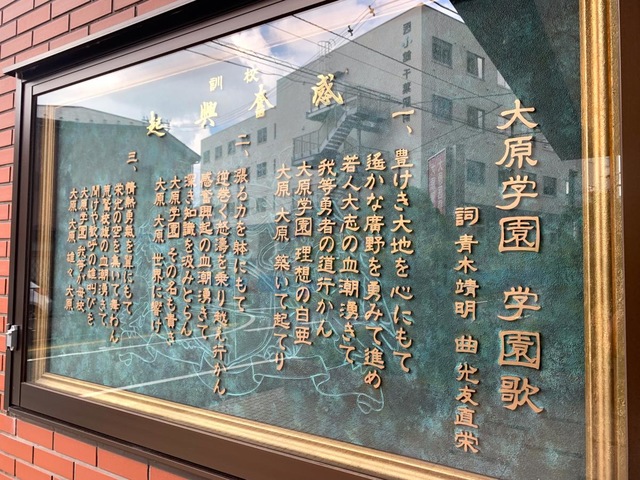 大原学園 学園歌
詞 青木靖明 曲 光友直栄
校訓
感奮興起
一、豊けき大地を心にもて
遙かな廣野を勇みて進め
若人大志の血潮湧きて
我等勇者の道行かん
大原学園 理想の白亜
大原 大原 築いて起てり
二、漲る力を躰にもて
逆巻く怒濤を乗り越え行かん
感奮興起の血潮湧きて
深き知識を汲みとらん
大原学園 その名も
大原 大原 世界に響け
三、情熱勇氣を翼にもて
の空を集いて舞わん
の血潮湧きて
歓呼の雄叫びを
大原学園
大原 大原 雄々 大原